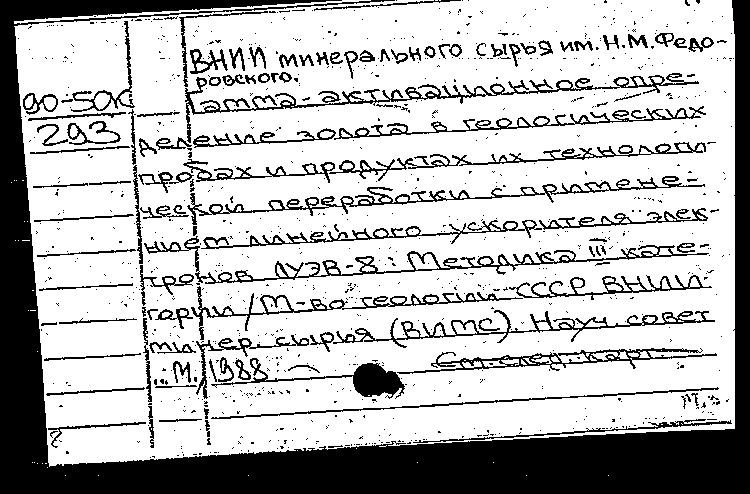 ВНИИ минерального сырья им. Н.М. Федо-
ровского.
90-50к
293
Гамма-активационное опре-
деление золота в геологических
пробах и продуктах их технологи-
ческой переработки с примене-
нием линейного ускорителя элек-
тронов ЛУЭВ-8: Методика III кате-
гории / М-во геологии СССР, ВНИИ
минер. сырья (ВИМС). Науч. совет
... М., 1988
См. след. карт.